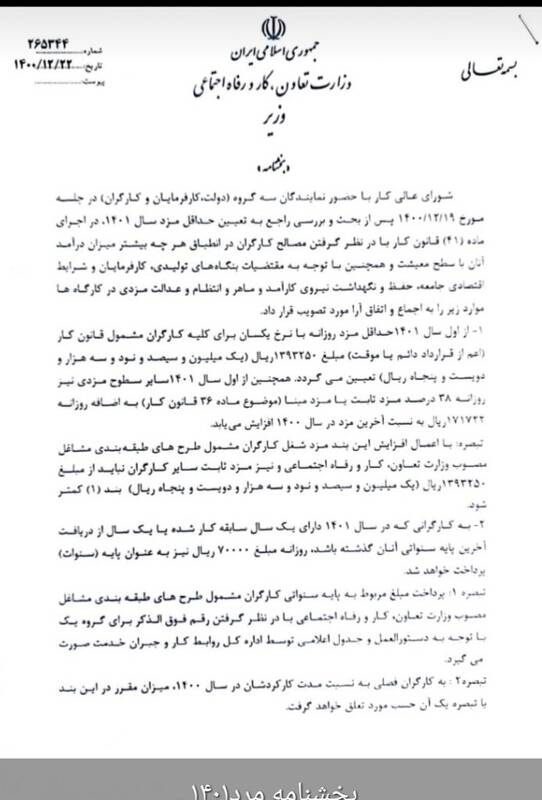 بسمه تعالی
جمهوری اسلامی ایران
وزارت تعاون، کار و رفاه اجتماعی
وزیر
شماره: ۲۶۵۳۴۴
تاریخ: ۱۴۰۰/۱۲/۲۲
پیوست:
«بخشنامه»
شورای عالی کار با حضور نمایندگان سه گروه (دولت،کارفرمایان و کارگران) در جلسه
مورخ ۱۴۰۰/۱۲/۱۹ پس از بحث و بررسی راجع به تعیین حداقل مزد سال ۱۴۰۱، در اجرای
ماده (۴۱) قانون کار با در نظر گرفتن مصالح کارگران در انطباق هر چه بیشتر میزان درآمد
آنان با سطح معیشت و همچنین با توجه به مقتضیات بنگاه‌های تولیدی، کارفرمایان و شرایط
اقتصادی جامعه، حفظ و نگهداشت نیروی کارآمد و ماهر و انتظام و عدالت مزدی در کارگاه ها
موارد زیر را به اجماع و اتفاق آرا مورد تصویب قرار داد.
۱- از اول سال ۱۴۰۱حداقل مزد روزانه با نرخ یکسان برای کلیه کارگران مشمول قانون کار
(اعم از قرارداد دائم یا موقت) مبلغ ۱۳۹۳۲۵۰ریال (یک میلیون و سیصد و نود و سه هزار و
دویست و پنجاه ریال) تعیین می گردد. همچنین از اول سال ۱۴۰۱سایر سطوح مزدی نیز
روزانه ۳۸ درصد مزد ثابت یا مزد مبنا (موضوع ماده ۳۶ قانون کار) به اضافه روزانه
۱۷۱۷۲۲ریال به نسبت آخرین مزد در سال ۱۴۰۰ افزایش می‌یابد.
تبصره: با اعمال افزایش این بند مزد شغل کارگران مشمول طرح های طبقه‌بندی مشاغل
مصوب وزارت تعاون، کار و رفاه اجتماعی و نیز مزد ثابت سایر کارگران نباید از مبلغ
۱۳۹۳۲۵۰ریال (یک میلیون و سیصد و نود و سه هزار و دویست و پنجاه ریال) بند (۱) کمتر
شود.
۲- به کارگرانی که در سال ۱۴۰۱ دارای یک سال سابقه کار شده یا یک سال از دریافت
آخرین پایه سنواتی آنان گذشته باشد، روزانه مبلغ ۷۰۰۰۰ ریال نیز به عنوان پایه (سنوات)
پرداخت خواهد شد.
تبصره ۱: پرداخت مبلغ مربوط به پایه سنواتی کارگران مشمول طرح های طبقه بندی مشاغل
مصوب وزارت تعاون، کار و رفاه اجتماعی با در نظر گرفتن رقم فوق الذکر برای گروه یک
با توجه به دستورالعمل و جدول اعلامی توسط اداره کل روابط کار و جبران خدمت صورت
می گیرد.
تبصره۲: به کارگران فصلی به نسبت مدت کارکردشان در سال ۱۴۰۰، میزان مقرر در این بند
یا تبصره یک آن حسب مورد تعلق خواهد گرفت.
بخشنامه مزد۱۴۰۱